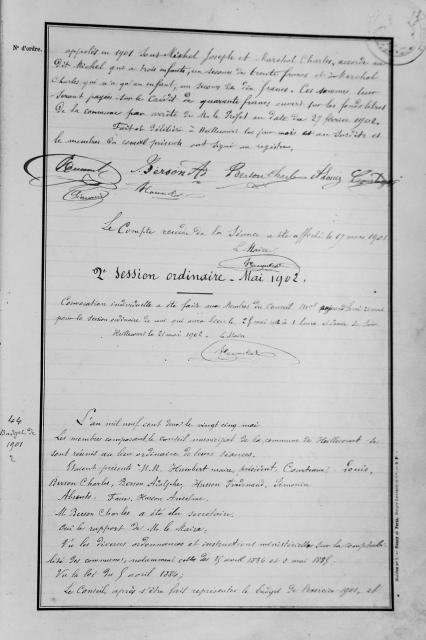 N° d'ordre.
appelés en 1901 sont Michel Joseph et Maréchal Charles, accorde au
Dit Michel qui a trois enfants, un secours de trente francs et à Maréchal
Charles, qui n'a qu'un enfant, un secours de dix francs. Ces sommes leur
seront payées sur le crédit de quarante francs ouvert sur les fonds libres
De la commune par arrêté de M. le Préfet en date du 27 février 1902.
Fait et Délibéré à Haillecourt les jour mois et an susdits et
les membres du conseil présents ont signé au registre,
Berson Ad Berson Charles
Le Compte rendu de la Séance a été affiché le 17 mars 1901
Le Maire
2e Session ordinaire - Mai 1902.
Convocation individuelle a été faite aux Membres du Conseil
pour la session ordinaire de mai qui aura lieu le 25 mai 1902 à 1 heure
Haillecourt le 21 mai 1902. Le Maire
44
Budget de
1901
2
L'an mil neuf cent deux le vingt cinq mai
Les membres composant le conseil municipal de la commune de Haillecourt se
sont réunis au lieu ordinaire de leurs séances.
Etaient présents M.M. Humbert maire, président, Louis,
Berson Charles, Berson Adolphe, Husson Ferdinand, Simonin
Absents. Husson Anselme.
M. Berson Charles a été élu secrétaire.
Oui le rapport de M. le Maire,
Vu les diverses ordonnances et instructions ministérielles sur la comptabi-
lité des communes, notamment celles des
Vu la loi du 5 avril 1884;
Le Conseil après s'être fait représenter le budget de l'exercice 1901, et